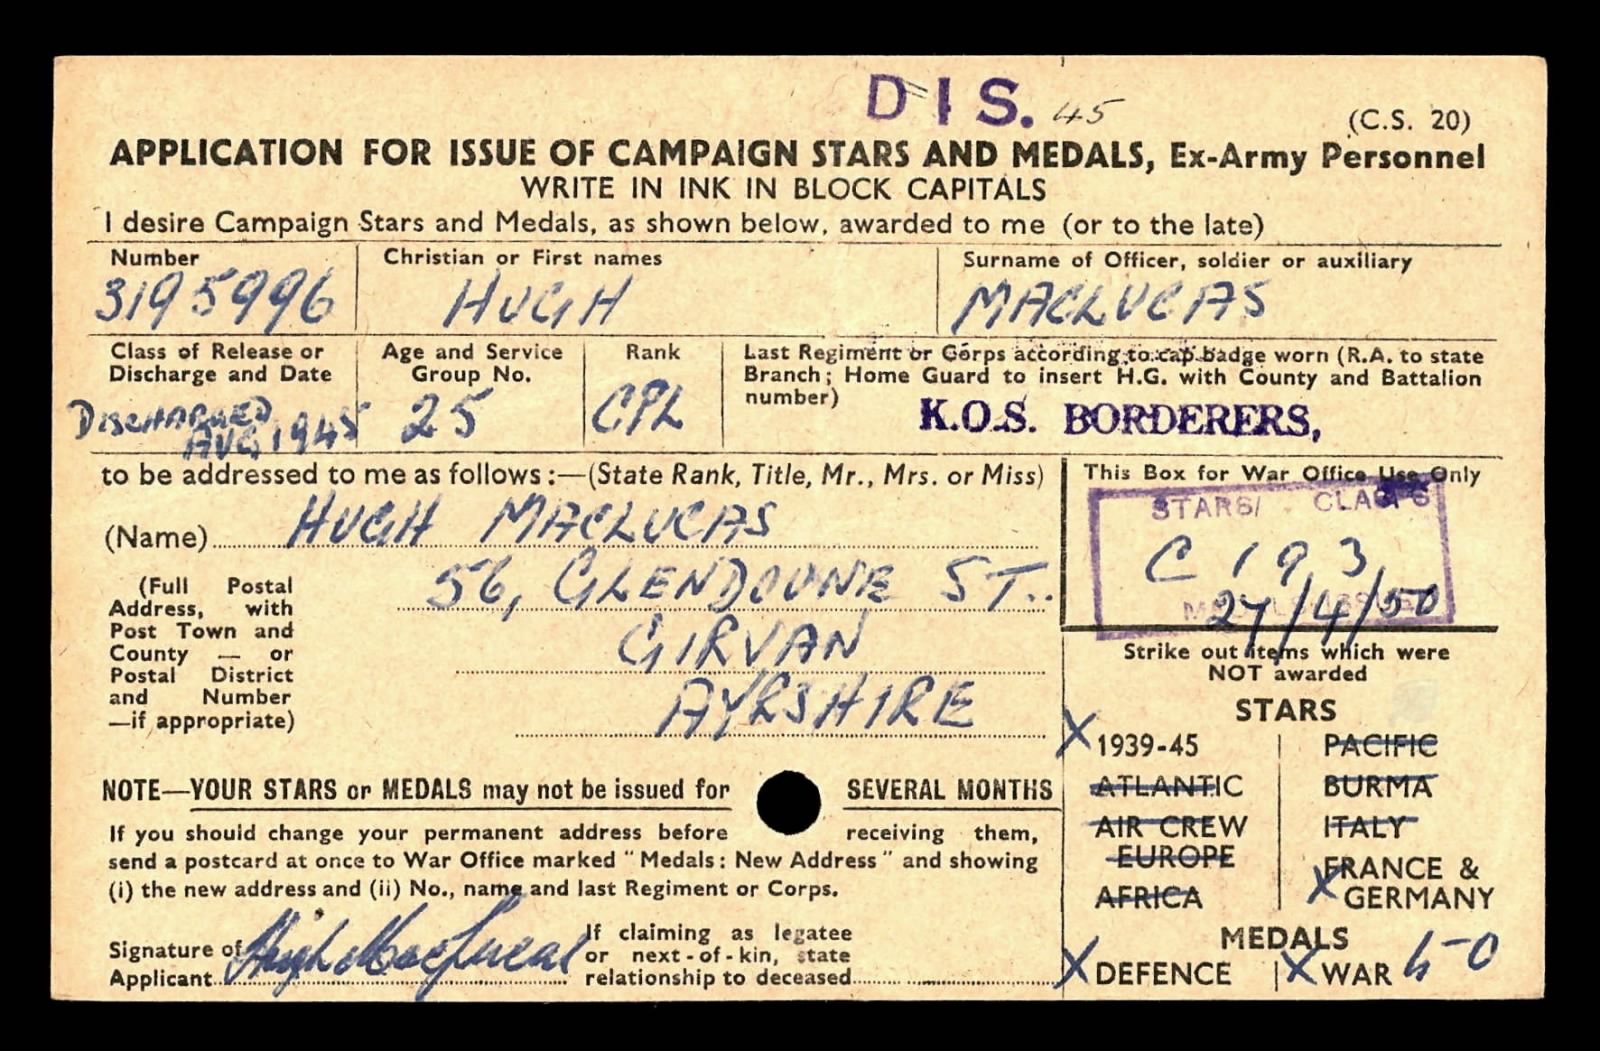 DIS. 45
(C.S. 20)
APPLICATION FOR ISSUE OF CAMPAIGN STARS AND MEDALS, Ex-Army Personnel
WRITE IN INK IN BLOCK CAPITALS
I desire Campaign Stars and Medals, as shown below, awarded to me (or to the late)
Number
3195996
Christian or First names
HUGH
Surname of Officer, soldier or auxiliary
MACLUCAS
Class of Release or
Discharge and Date
DISCHARGED
AUG 1945
Age and Service
Group No.
25
Rank
CPL
Last Regiment or Corps according to cap badge worn (R.A. to state
Branch; Home Guard to insert H.G. with County and Battalion
number)
K.O.S. BORDERERS,
to be addressed to me as follows:—(State Rank, Title, Mr., Mrs. or Miss)
(Name) HUGH MACLUCAS
(Full Postal
Address, with
Post Town and
County — or
Postal District
and Number
—if appropriate)
56, GLENDOUNE ST.
GIRVAN
AYRSHIRE
This Box for War Office Use Only
STARS/ CLASPS
C 193
27/4/50
Strike out items which were
NOT awarded
STARS
X 1939-45
PACIFIC
ATLANTIC
BURMA
AIR CREW
EUROPE
ITALY
AFRICA
FRANCE &
X GERMANY
MEDALS
X DEFENCE
X WAR
NOTE—YOUR STARS or MEDALS may not be issued for SEVERAL MONTHS
If you should change your permanent address before receiving them,
send a postcard at once to War Office marked "Medals: New Address" and showing
(i) the new address and (ii) No., name and last Regiment or Corps.
Signature of
Applicant Hugh MacLucas
If claiming as legatee
or next-of-kin, state
relationship to deceased